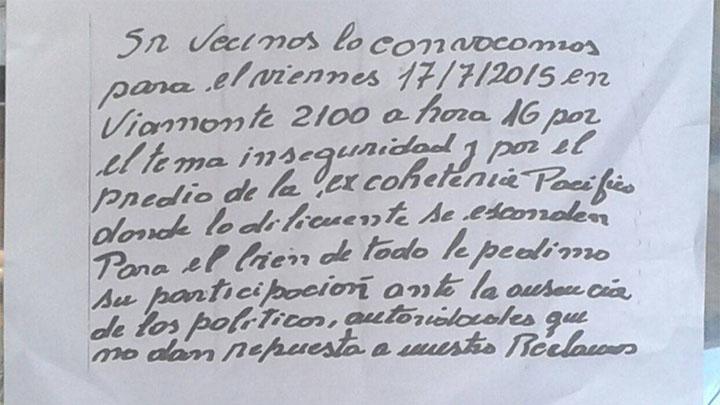 Sr Vecinos lo convocamos
para el viernes 17/7/2015 en
Viamonte 2100 a hora 16 por
el tema inseguridad y por el
predio de la ex coheteria Pacifico
donde lo dilicuente se esconden
Para el bien de todo le pedimo
su participacion ante la ausencia
de los politicos, autoridadales que
no dan repuesta a nuestro Reclamos